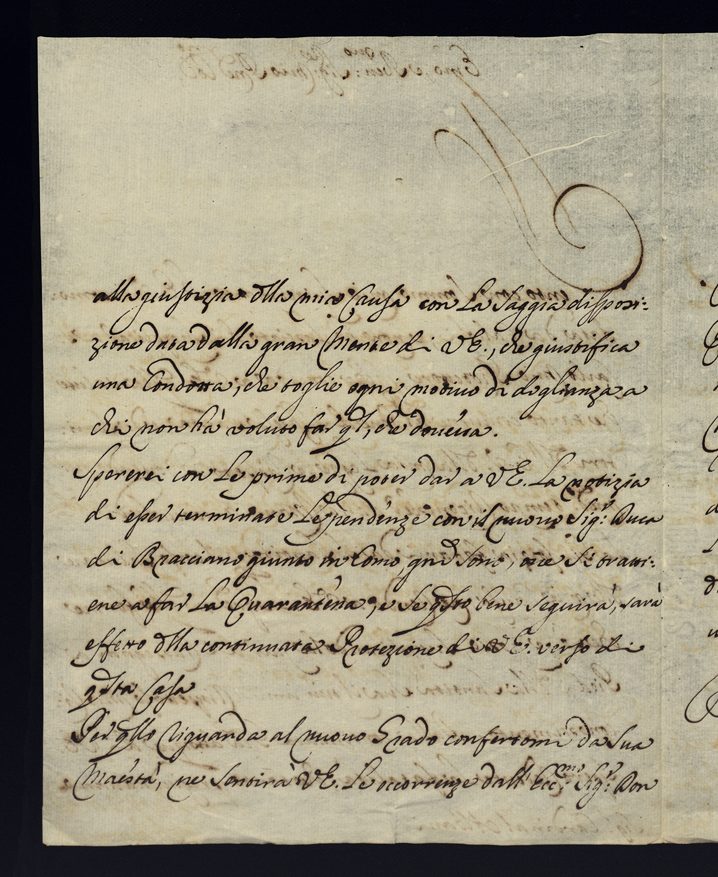 alla giustizia dlla mia Causa con La Saggia disposi:
zione data dalla gran Mente di VE., che giustifica
una Condotta, che toglie ogni motivo di doglianza a
chi non hà voluto far ql, che doueua.
Spererei con Le prime di poter dar a VE. La notizia
di esser terminate Le pendenze con il nuouo Sigr. Duca
di Bracciano giunto in Como
ene a far La Quarantena, e se qsto bene seguirà, sarà
effetto dlla continuata Protezione di VE. verso di
qsta Casa
Per qllo riguarda al nuouo Grado confertomi da Sua
Maestà, ne sentirà VE. Le occorrenze dall' Eccmo. Sigr. Don